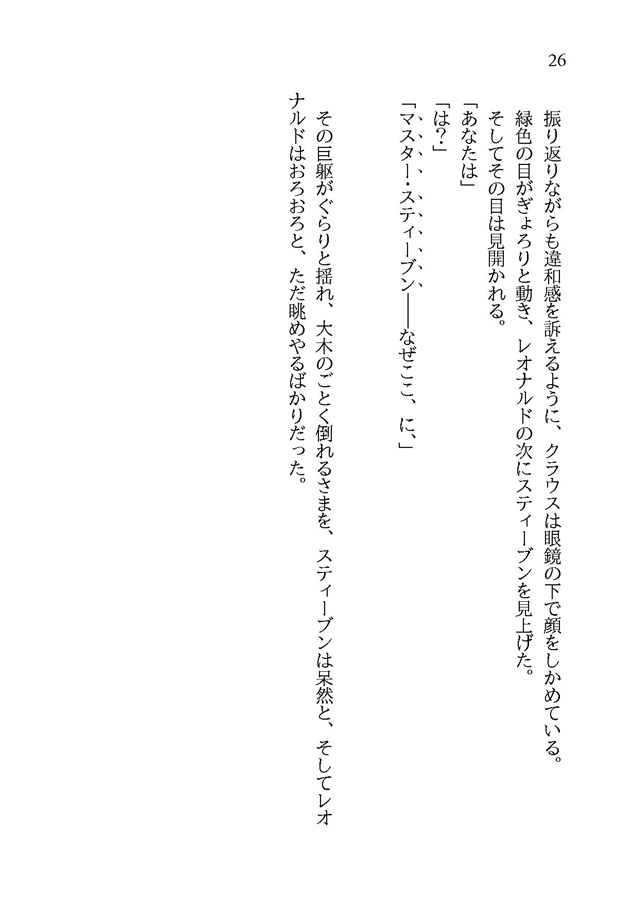 26
振り返りながらも違和感を訴えるように、クラウスは眼鏡の下で顔をしかめている。
緑色の目がぎょろりと動き、レオナルドの次にスティーブンを見上げた。
そしてその目は見開かれる。
「あなたは」
「は？」
「マスター・スティーブン――なぜここ、に、」
その巨躯がぐらりと揺れ、大木のごとく倒れるさまを、スティーブンは呆然と、そしてレオ
ナルドはおろおろと、ただ眺めやるばかりだった。